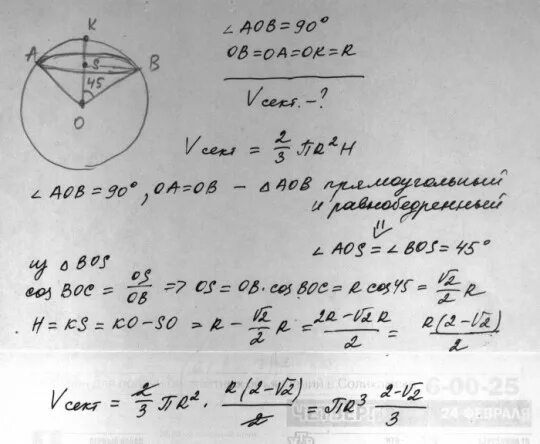 K
A
B
S
45
O
∠AOB = 90°
OB = OA = OK = R
Vсект. - ?
Vсект = 2/3 πR²H
∠AOB = 90°, OA = OB - △AOB прямоугольный
и равнобедренный
⇓
∠AOS = ∠BOS = 45°
из △BOS
cos BOC = OS/OB => OS = OB · cos BOC = R cos 45 = √2/2 R
H = KS = KO - SO = R - √2/2 R = 2R - √2 R / 2 = R(2-√2)/2
Vсект = 2/3 πR² · R(2-√2)/2 = πR³ 2-√2/3
6-00-25
ЧЕТВЕРГ
24 ФЕВРАЛЯ